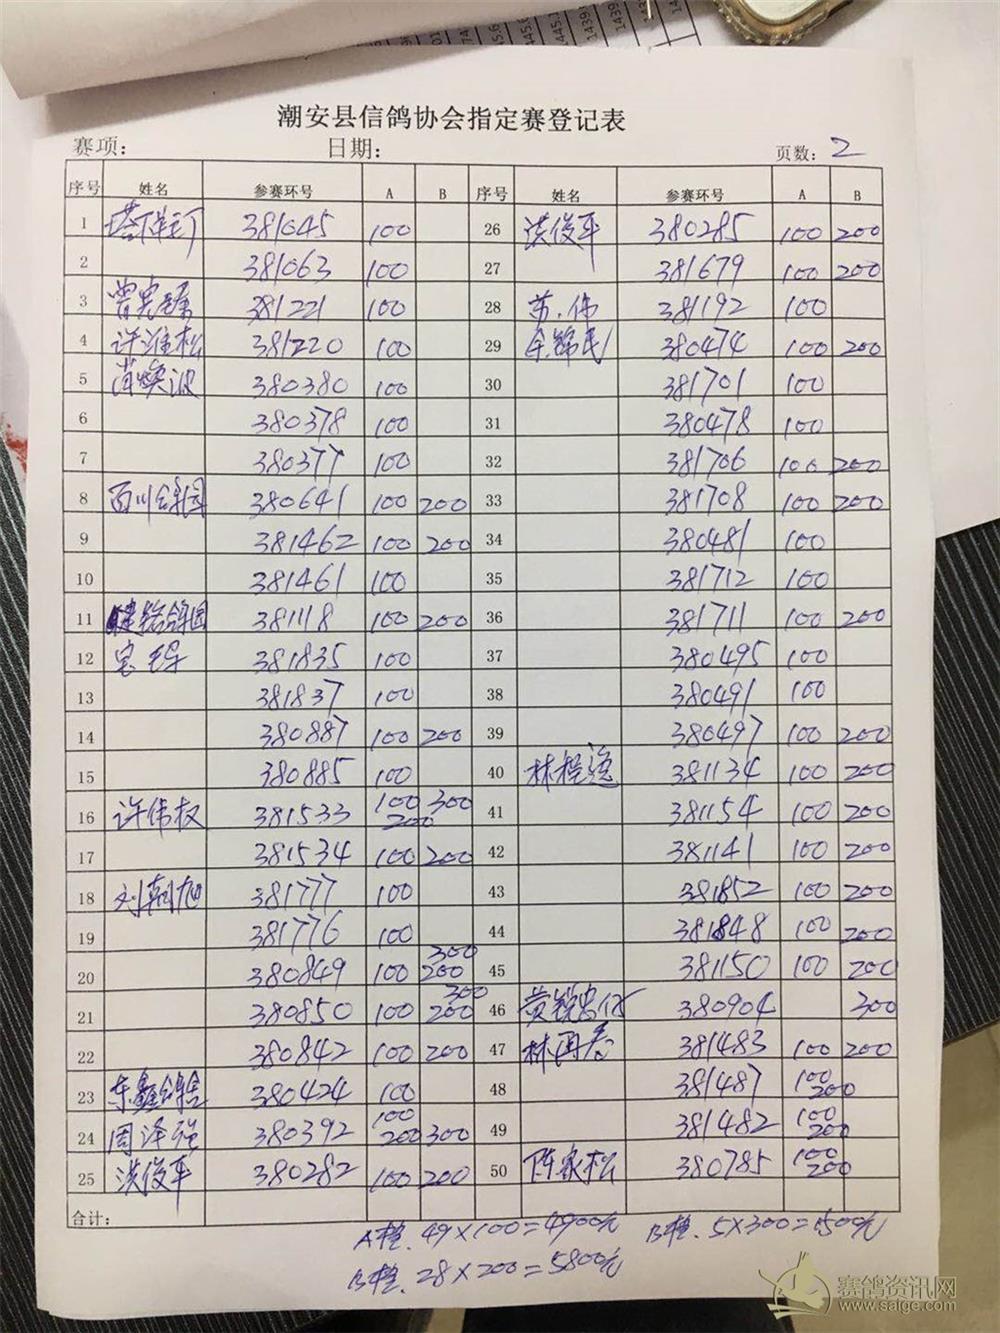 潮安县信鸽协会指定赛登记表
赛项: 日期: 页数: 2
序号 姓名 参赛环号 A B 序号 姓名 参赛环号 A B
1 381045 100 26 洪俊平 380285 100 200
2 381063 100 27 381679 100 200
3 曾宪 381221 100 28 苏伟 381192 100
4 许淮松 381220 100 29 余锦民 380474 100 200
5 肖焕波 380380 100 30 381701 100
6 380378 100 31 380478 100
7 380377 100 32 381706 100 200
8 百川鸽园 380641 100 200 33 381708 100 200
9 381462 100 200 34 380481 100
10 381461 100 35 381712 100
11 鸽园 381118 100 200 36 381711 100 200
12 381835 100 37 380495 100
13 381837 100 38 380491 100
14 380887 100 200 39 380497 100 200
15 380885 100 40 林 381134 100 200
16 许伟权 381533 100 200 300 41 381154 100 200
17 381534 100 200 42 381141 100 200
18 刘朝旭 381777 100 43 381852 100 200
19 381776 100 44 381848 100 200
20 380849 100 300 200 45 381150 100 200
21 380850 100 300 200 46 黄 380904 300
22 380842 100 200 47 林 381483 100 200
23 东鑫鸽舍 380424 100 48 381487 100 200
24 周泽强 380392 100 200 300 49 381482 100 200
25 洪俊平 380282 100 200 50 陈家松 380785 100 200
合计:
A栏. 49×100=4900元 B栏. 5×300=1500元
B栏. 28×200=5800元
赛鸽资讯网
www.saige.com